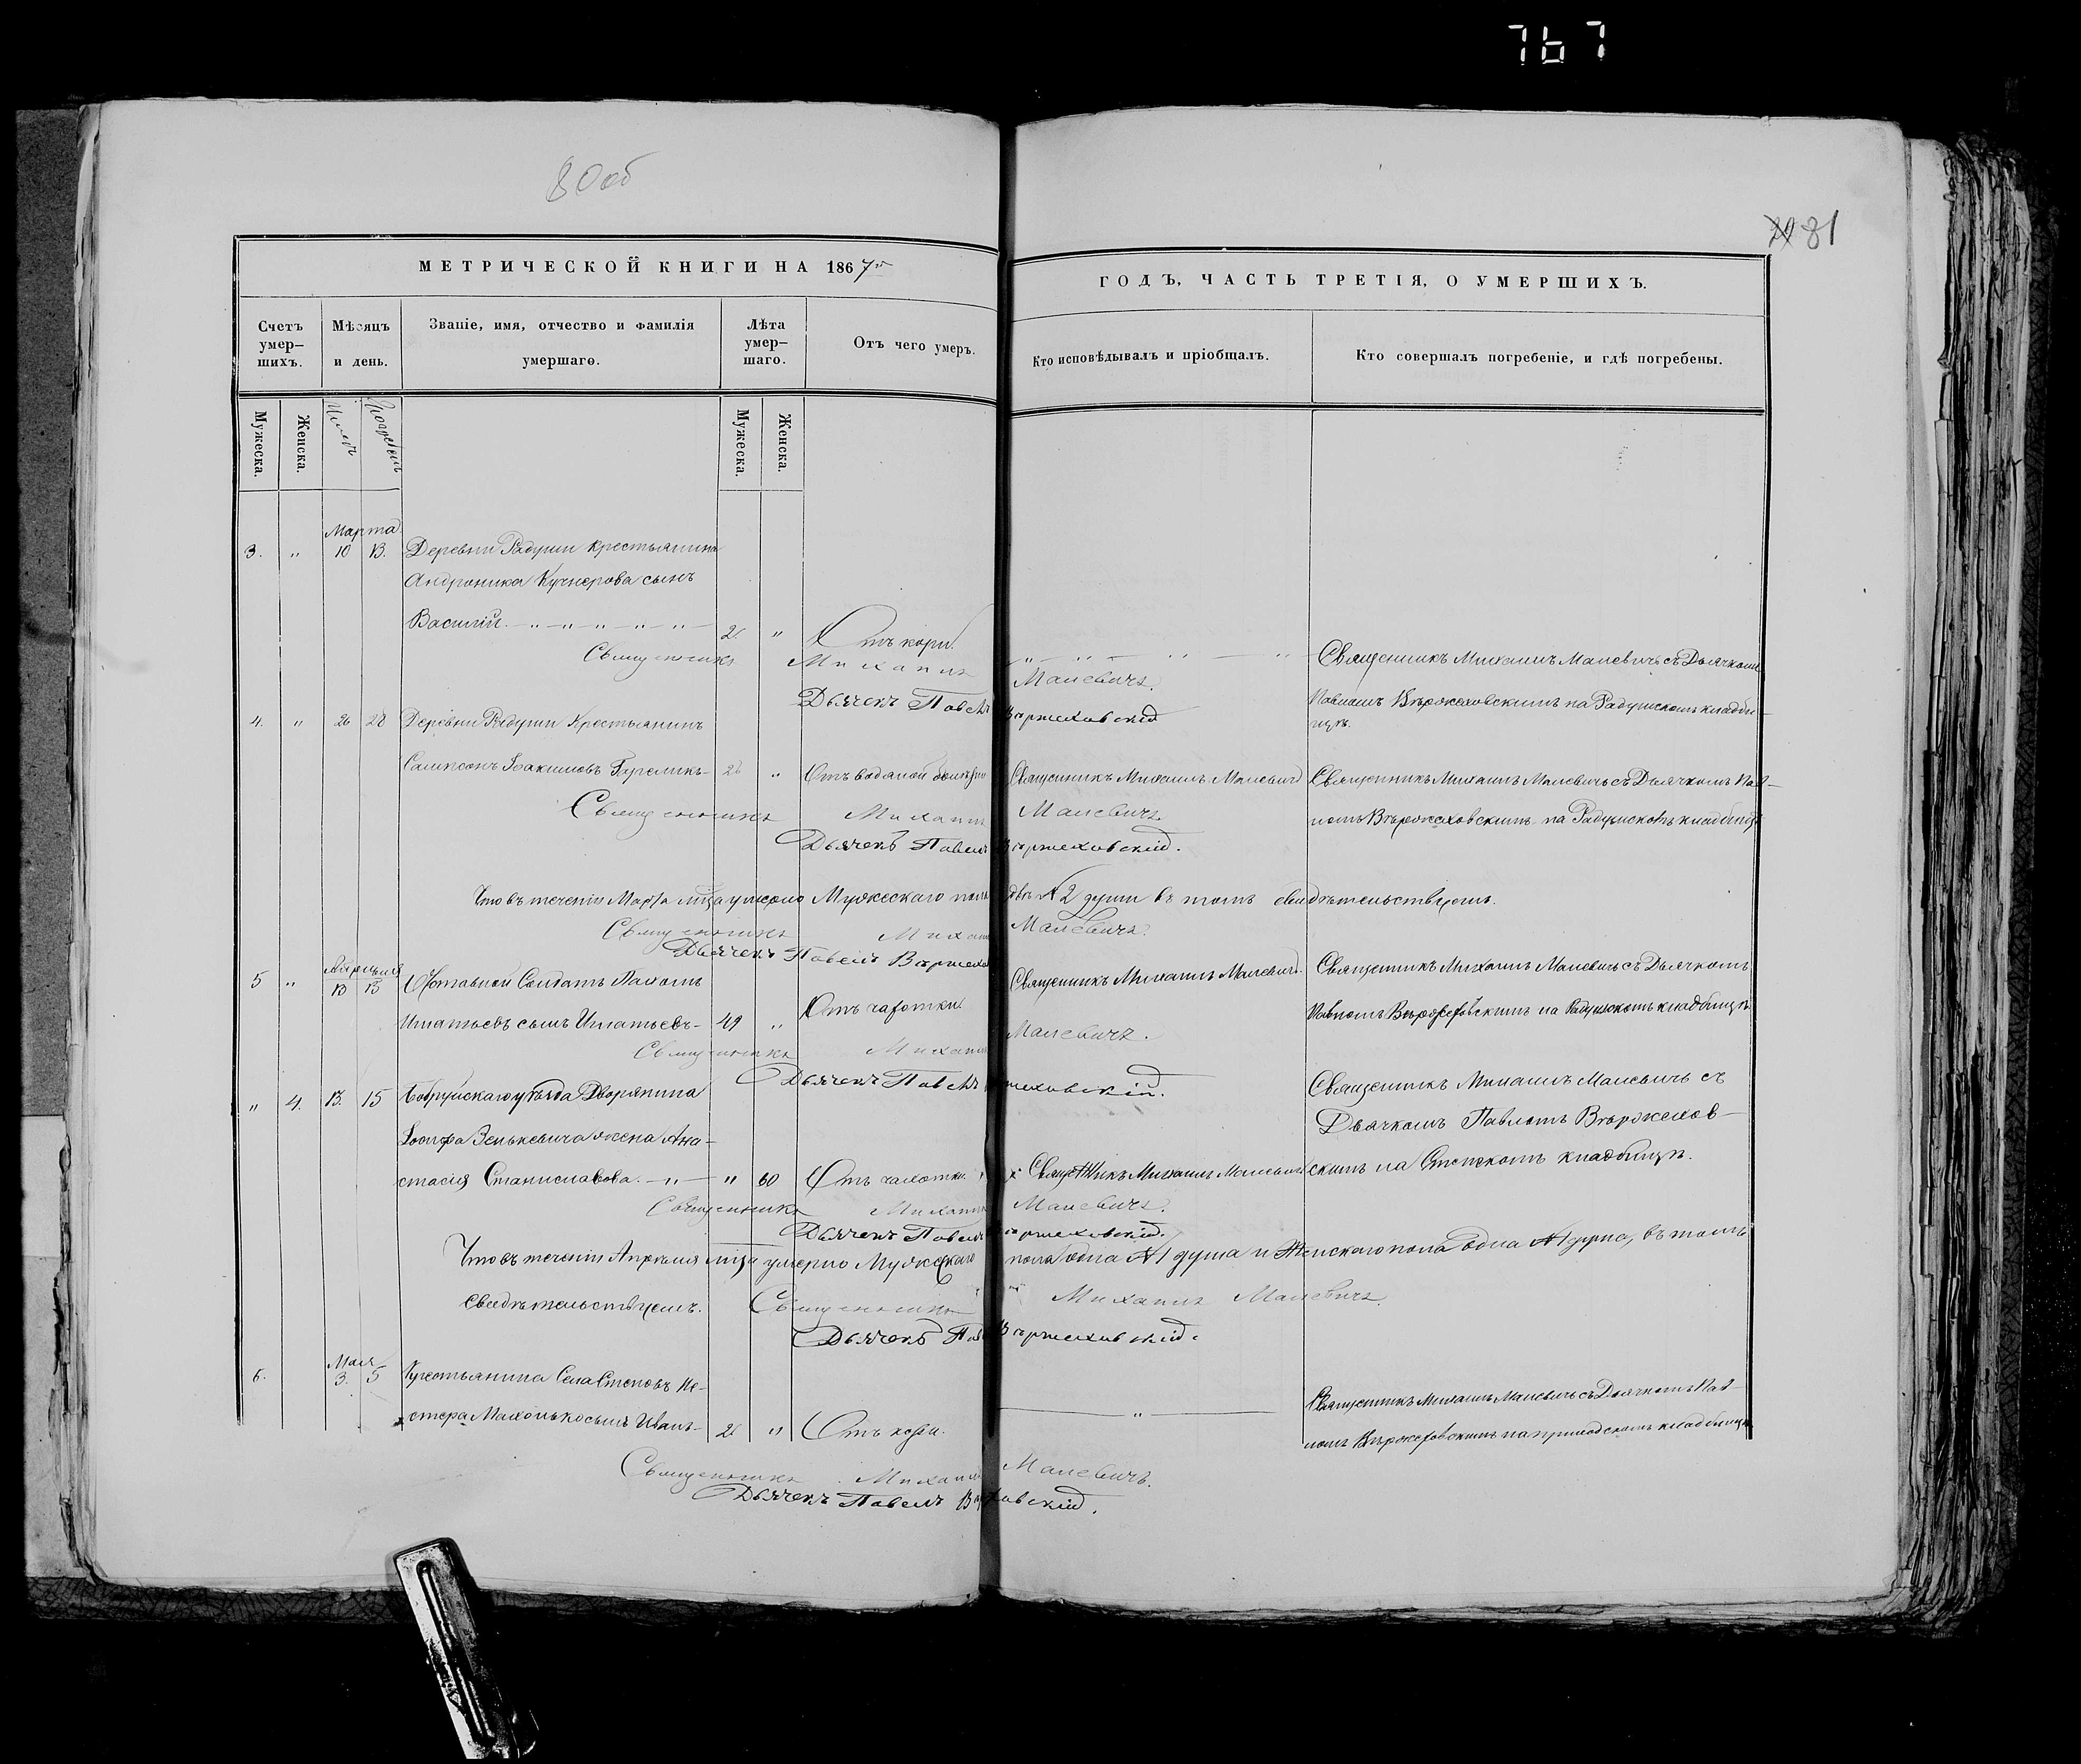 767
80об
81
МЕТРИЧЕСКОЙ КНИГИ НА 1867й
ГОДЪ, ЧАСТЬ ТРЕТІЯ, О УМЕРШИХЪ.
Счетъ умер-шихъ.
Мѣсяцъ и день.
Званіе, имя, отчество и фамилія умершаго.
Лѣта умер-шаго.
Отъ чего умеръ.
Кто исповѣдывалъ и пріобщалъ.
Кто совершалъ погребеніе, и гдѣ погребены.
Мужеска.
Женска.
Мужеска.
Женска.
Марта
3. " 10 13. Деревни Радуши крестьянина
Андроника Кучнерова сынъ
Василій - " - " - " - " - " - 2. " Отъ кори.
Священникъ Михаилъ Малевичъ.
Дьячекъ Павелъ
Священникъ Михаилъ Малевичъ съ Дьячкомъ
Павломъ на Радушскомъ кладби-
щѣ.
4. " 26 28 Деревни Радуши Крестьянинъ
Сампсонъ Іоакимовъ - " Отъ водяной болѣзни Священникъ Михаилъ Малевичъ Священникъ Михаилъ Малевичъ съ Дьячкомъ Пав-
ломъ на Радушскомъ кладбищѣ
Священникъ Михаилъ Малевичъ.
Дьячекъ Павелъ
Что въ теченіи Марта м-ца умерло Мужескаго пола двѣ № 2 души въ томъ свидѣтельствуемъ.
Священникъ Михаилъ Малевичъ.
Дьячекъ Павелъ
Апрѣля
5 " 13 15 Отставной Солдатъ Пахомъ
Игнатьевъ сынъ Игнатьевъ - 49 " Отъ чахотки Священникъ Михаилъ Малевичъ. Священникъ Михаилъ Малевичъ съ Дьячкомъ
Павломъ на Радушскомъ кладбищѣ
Священникъ Михаилъ Малевичъ.
Дьячекъ Павелъ
" 4. 13. 15 Бобруйскаго уѣзда Дворянина
Іосифа Зенькевича жена Ана-
стасія Станиславова. - " - " 60 Отъ чахотки. Священникъ Михаилъ Малевичъ
Священникъ Михаилъ Малевичъ съ
Дьячкомъ Павломъ
скимъ на Степскомъ кладбищѣ.
Священникъ Михаилъ Малевичъ.
Дьячекъ Павелъ
Что въ теченіи Апрѣля м-ца умерло Мужескаго пола одна № 1 душа и Женскаго пола одна № 1 душа, въ томъ
свидѣтельствуемъ. Священникъ Михаилъ Малевичъ.
Дьячекъ
Мая
6. 3. 5 Крестьянина Села Степовъ Не-
стера Махонько сынъ Иванъ - 2 " Отъ кори. "
Священникъ Михаилъ Малевичъ съ Дьячкомъ Пав-
ломъ на приходскомъ кладбищѣ
Священникъ Михаилъ Малевичъ.
Дьячекъ Павелъ